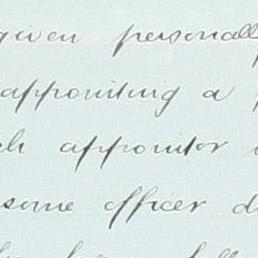 given personally
appointing a
appointor
some officer